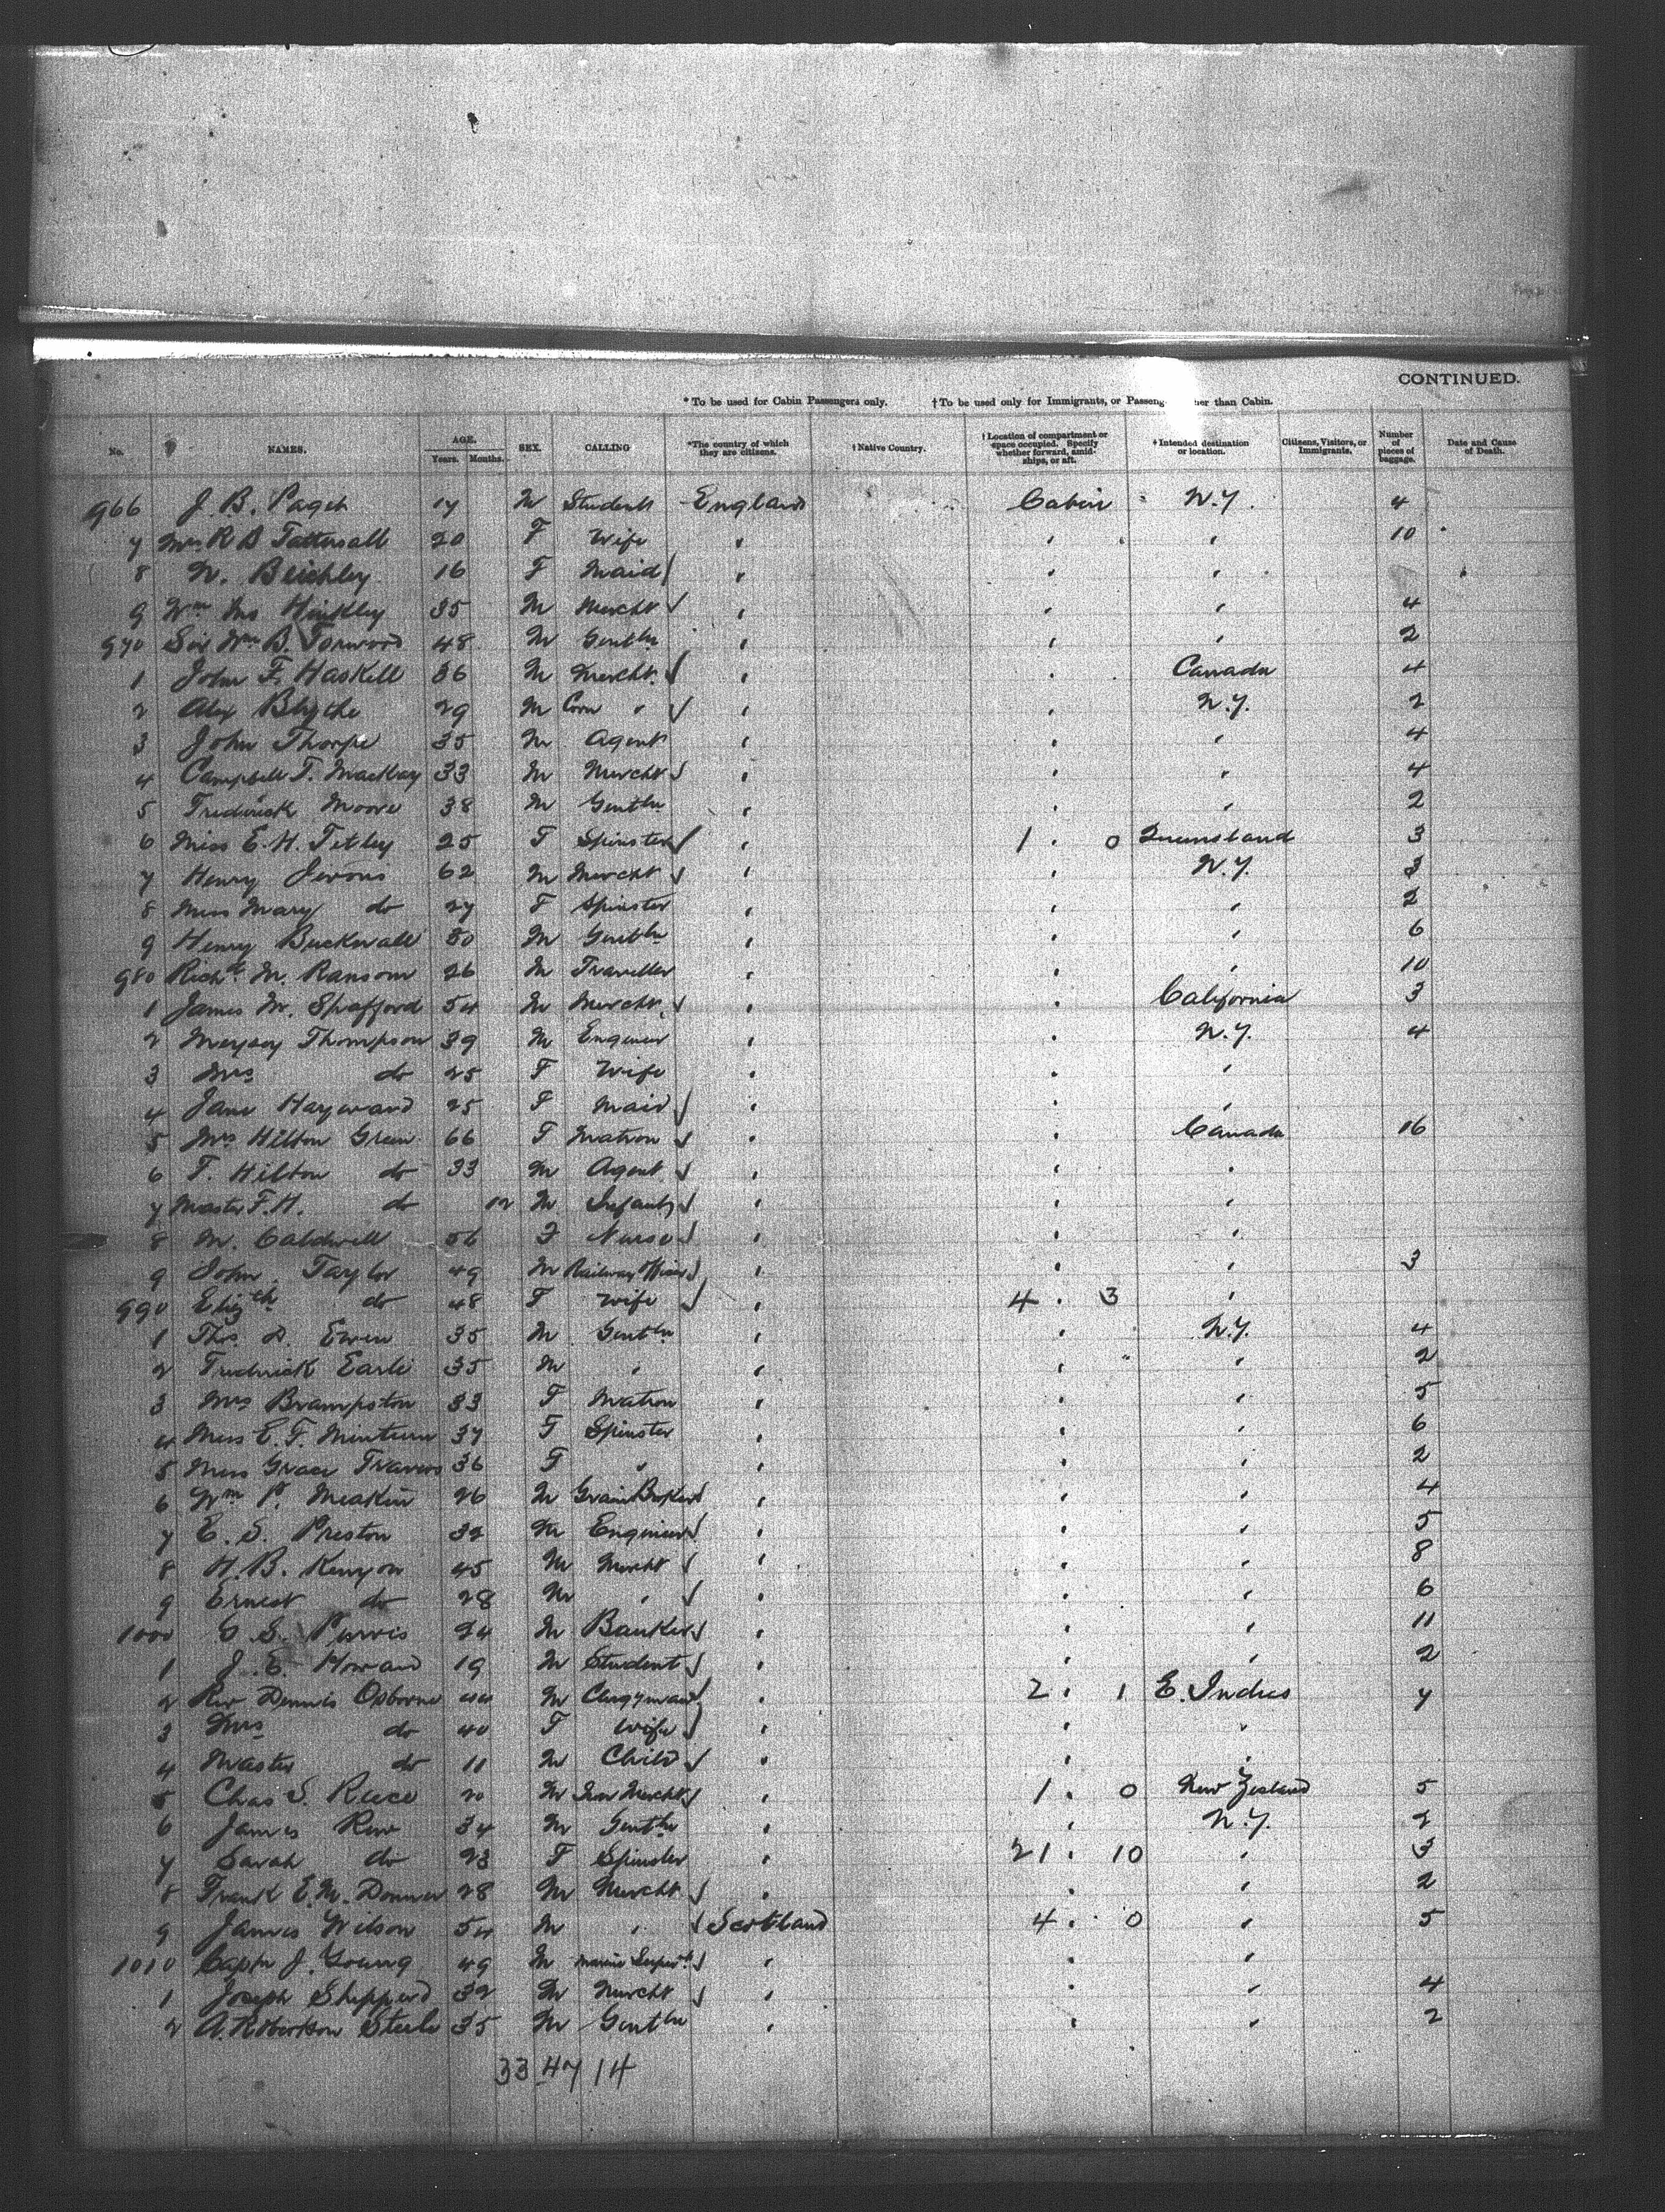 CONTINUED.
*To be used for Cabin Passengers only. †To be used only for Immigrants, or Passeng her than Cabin.
No. NAMES. AGE. Years. Months. SEX. CALLING *The country of which they are citizens. †Native Country. †Location of compartment or space occupied. Specify whether forward, amid-ships, or aft. †Intended destination or location. Citizens, Visitors, or Immigrants. Number of pieces of baggage. Date and Cause of Death.
966 J. B. 17 M Student England Cabin N.Y. 4
7 Mrs R B Tattersall 20 F Wife " " " 10
8 16 F Maid " " "
9 Wm Ms Hinkley 35 M Mercht " " " 4
970 Sir Wm B. Forwood 48 M Gentln " " " 2
1 John F. Haskell 36 M Mercht " " Canada 4
2 Alex Blythe 29 M Corn " " " N.Y. 2
3 John Thorpe 35 M Agent " " " 4
4 Campbell T. Mackay 33 M Mercht " " " 4
5 Frederick Moore 38 M Gentln " " " 2
6 Miss E. H. Tetley 25 F Spinster " 1 " 0 Queensland 3
7 Henry Jevons 62 M Mercht " " N.Y. 3
8 Miss Mary do 27 F Spinster " " " 2
9 Henry Bucknall 50 M Gentln " " " 6
980 Richd M. Ransom 26 M Traveller " " " 10
1 James M. Spafford 54 M Mercht " " California 3
2 Meysey Thompson 39 M Engineer " " N.Y. 4
3 Mrs do 25 F Wife " " "
4 Jane Hayward 25 F Maid " " "
5 Mrs Hilton Green 66 F Matron " " Canada 16
6 F. Hilton do 33 M Agent " " "
7 Master F. H. do 12 M Infant " " "
8 M. Caldwell 56 F Nurse " " "
9 John Taylor 49 M Railway Officer " " " 3
990 Elizth do 48 F Wife " 4 " 3 "
1 Thos D. Ewen 35 M Gentln " " N.Y. 4
2 Frederick Earle 35 M " " " " 2
3 Mrs Brampston 33 F Matron " " " 5
4 Miss E. F. 37 F Spinster " " " 6
5 Miss Grace Travers 36 F " " " " 2
6 Wm P. Meakin 26 M Grain Broker " " " 4
7 E. S. Preston 32 M Engineer " " " 5
8 H. B. Kenyon 45 M Mercht " " " 8
9 Ernest do 28 M " " " " 6
1000 G. S. Purvis 24 M Banker " " " 11
1 J. E. Howard 19 M Student " " " 2
2 Rev Dennis Osborne 44 M Clergyman " 2 " 1 E. Indies 7
3 Mrs do 40 F Wife " " "
4 Master do 11 M Child " " "
5 Chas S. Reece 20 M Iron Mercht " 1 " 0 New Zealand 5
6 James Rew 34 M Gentln " " N.Y. 2
7 Sarah do 23 F Spinster " 21 " 10 " 3
8 Frank E. M. 28 M Mercht " " " 2
9 James Wilson 54 M " Scotland 4 " 0 " 5
1010 Captn J. Young 49 M Marine Superint " " "
1 Joseph Shepperd 32 M Mercht " " " 4
2 A. Robertson Steele 35 M Gentln " " " 2
33 47 14